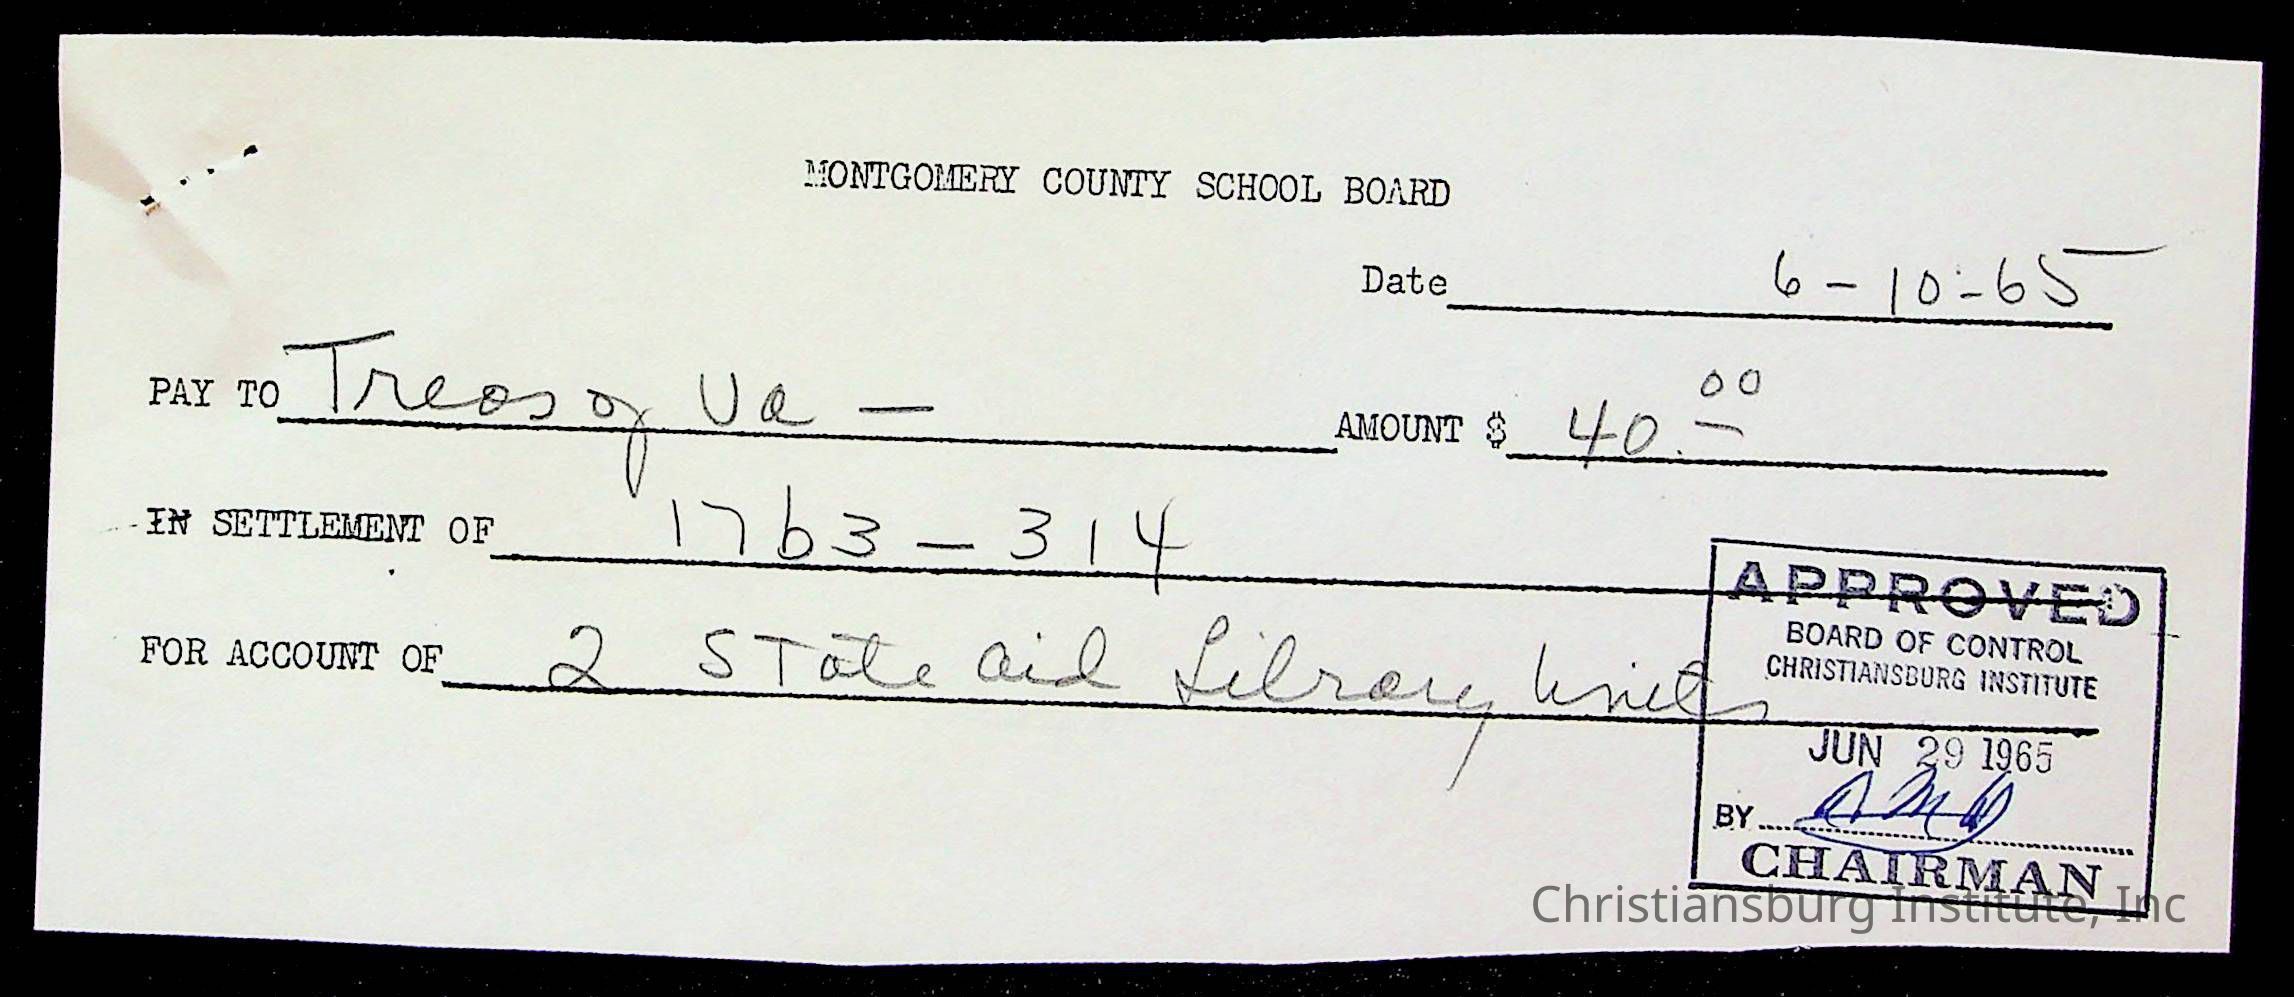 MONTGOMERY COUNTY SCHOOL BOARD
Date 6-10-65
PAY TO Treas of Va — AMOUNT $ 40.00
IN SETTLEMENT OF 1763-314
FOR ACCOUNT OF 2 State aid Library Units
APPROVED
BOARD OF CONTROL
CHRISTIANSBURG INSTITUTE
JUN 29 1965
BY
CHAIRMAN
Christiansburg Institute, Inc